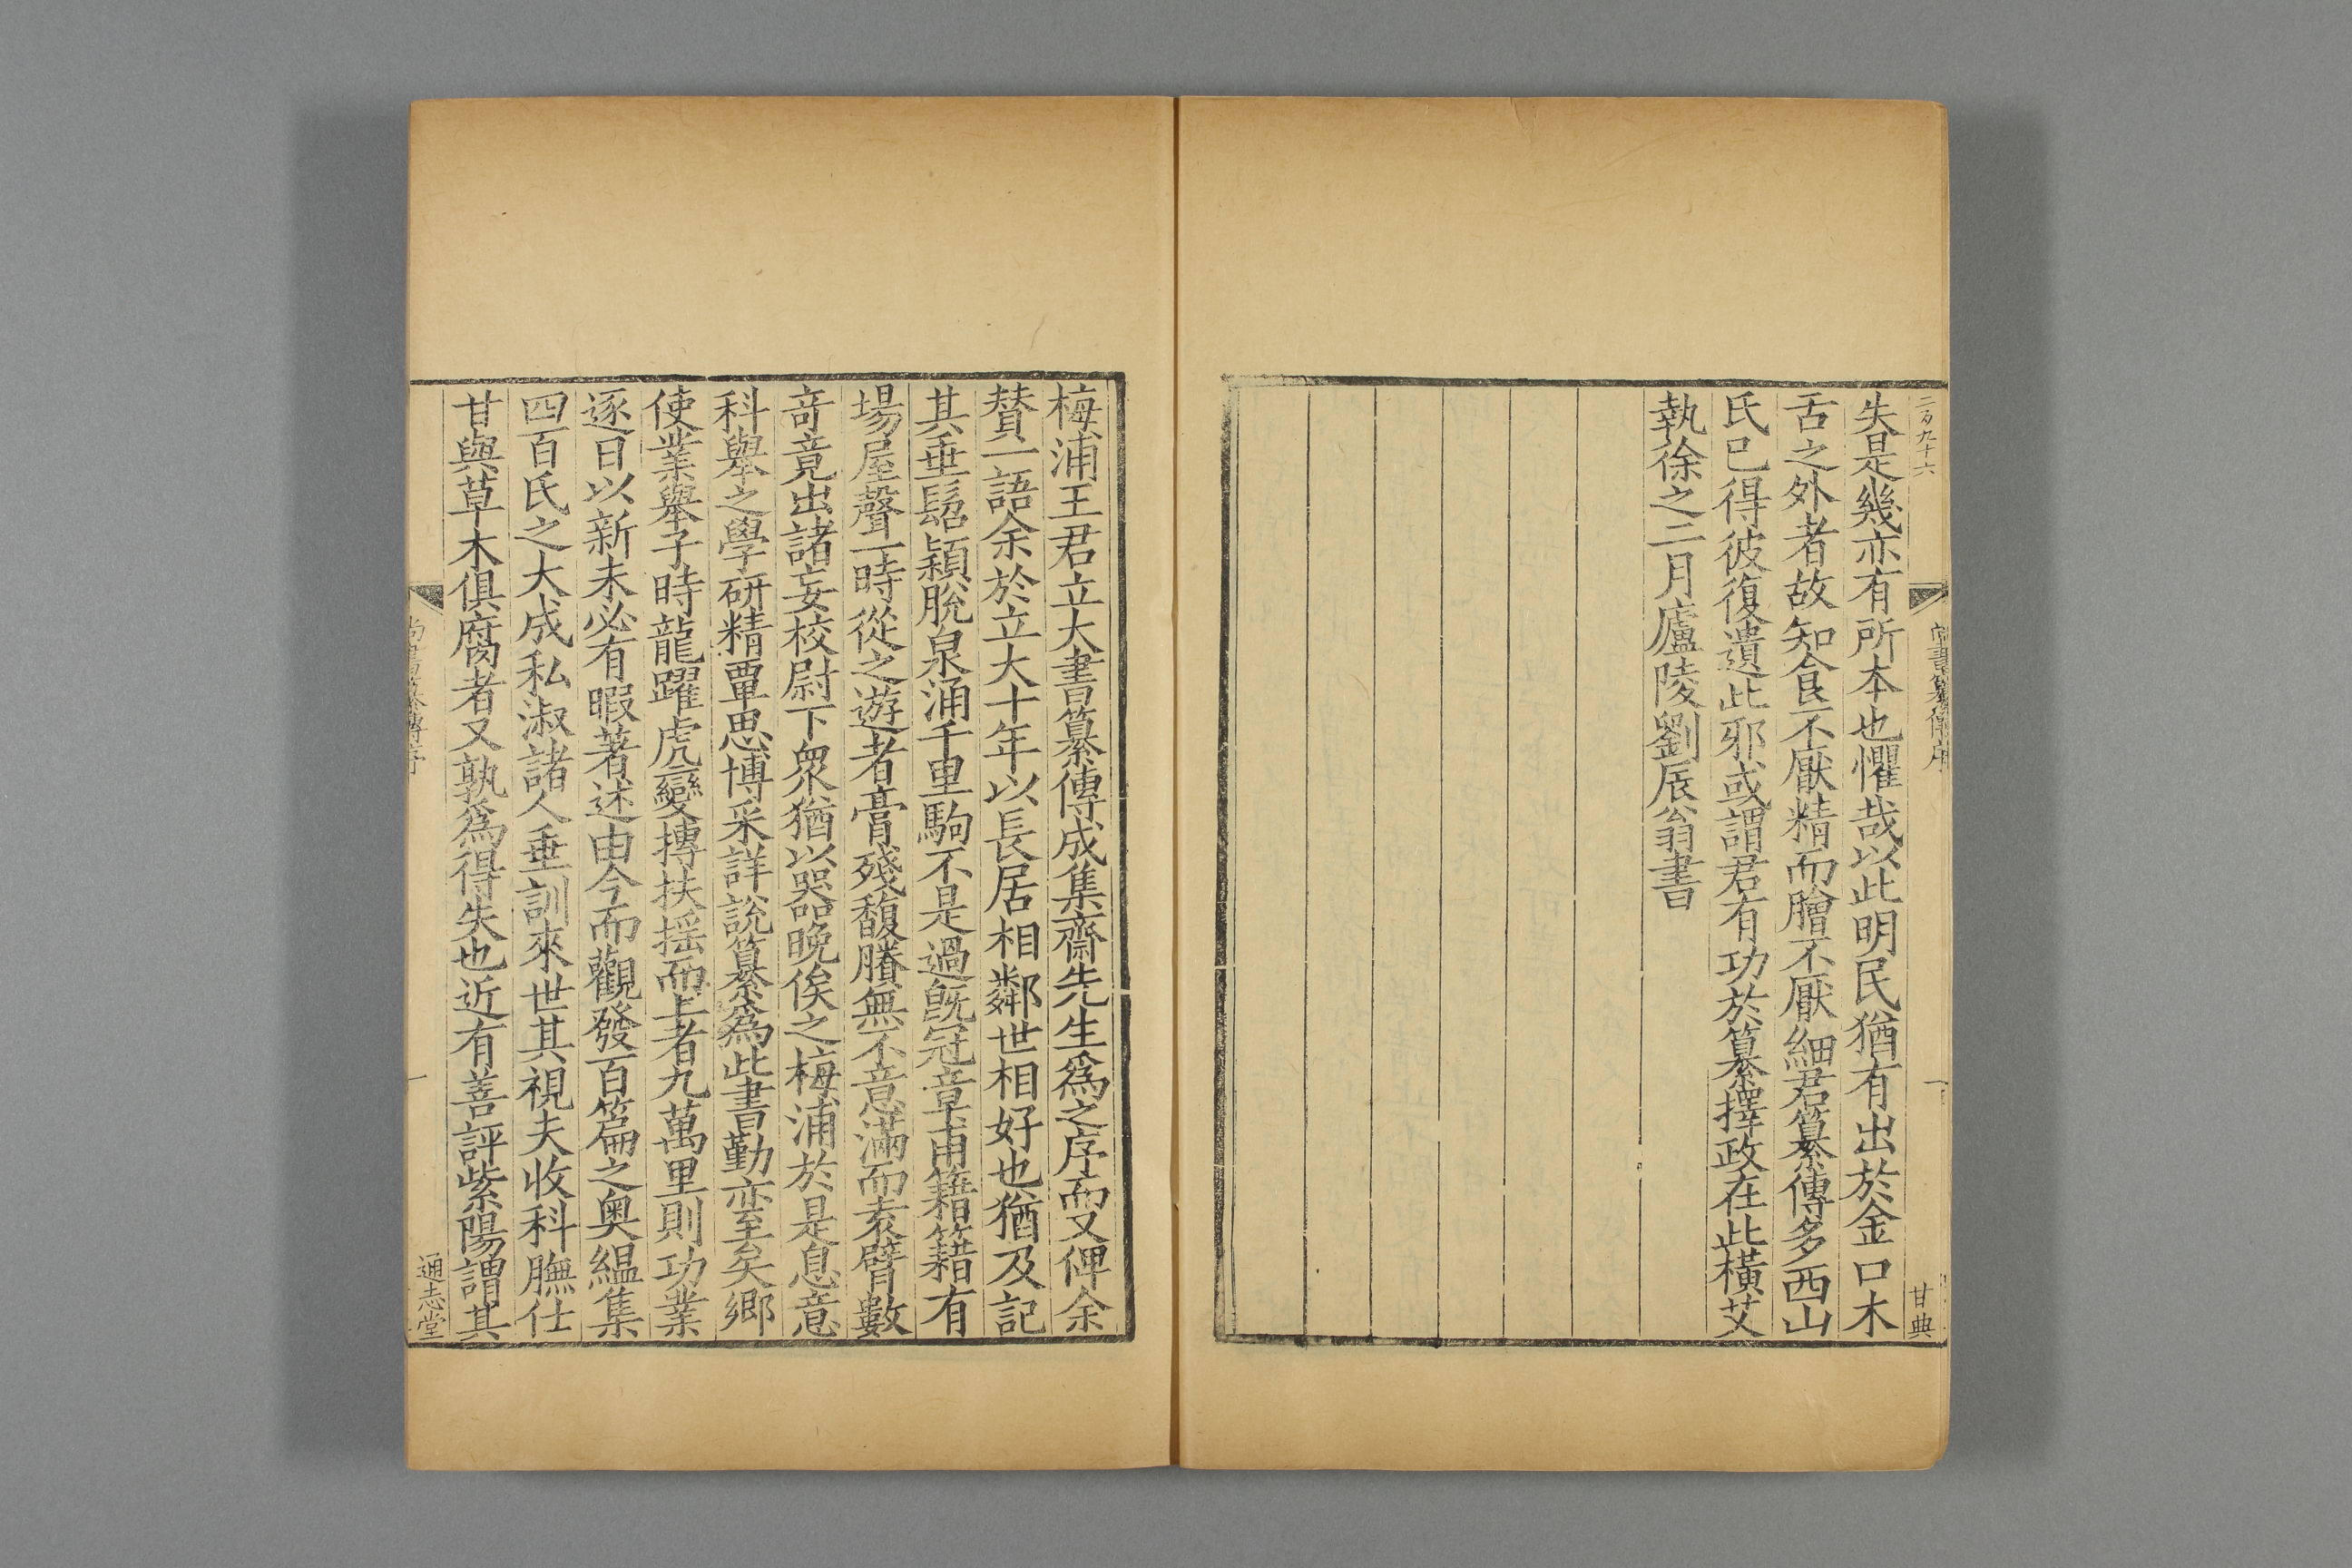 二百九十六
尚書纂傳序
一
甘典
失是幾亦有所本也懼哉以此明民猶有出於金口木
舌之外者故知食不厭精而膾不厭細君纂傳多西山
氏已得彼復遺此邪或謂君有功於纂擇政在此橫艾
執徐之二月廬陵劉辰翁書
梅浦王君立大書纂傳成集齋先生爲之序而又俾余
賛一語余於立大十年以長居相鄰世相好也猶及記
其垂髫穎脫泉涌千里駒不是過旣冠章甫籍籍有
場屋聲一時從之遊者膏殘馥賸無不意滿而素臂數
竒竟出諸妄校尉下衆猶以器晚俟之梅浦於是息意
科舉之學研精覃思博采詳說纂爲此書勤亦至矣鄉
使業舉子時龍躍虎變摶扶揺而上者九萬里則功業
逐日以新未必有暇著述由今而觀發百篇之奧緼集
四百氏之大成私淑諸人垂訓來世其視夫收科膴仕
甘與草木俱腐者又孰爲得失也近有善評紫陽謂其
尚書纂傳序
一
通志堂